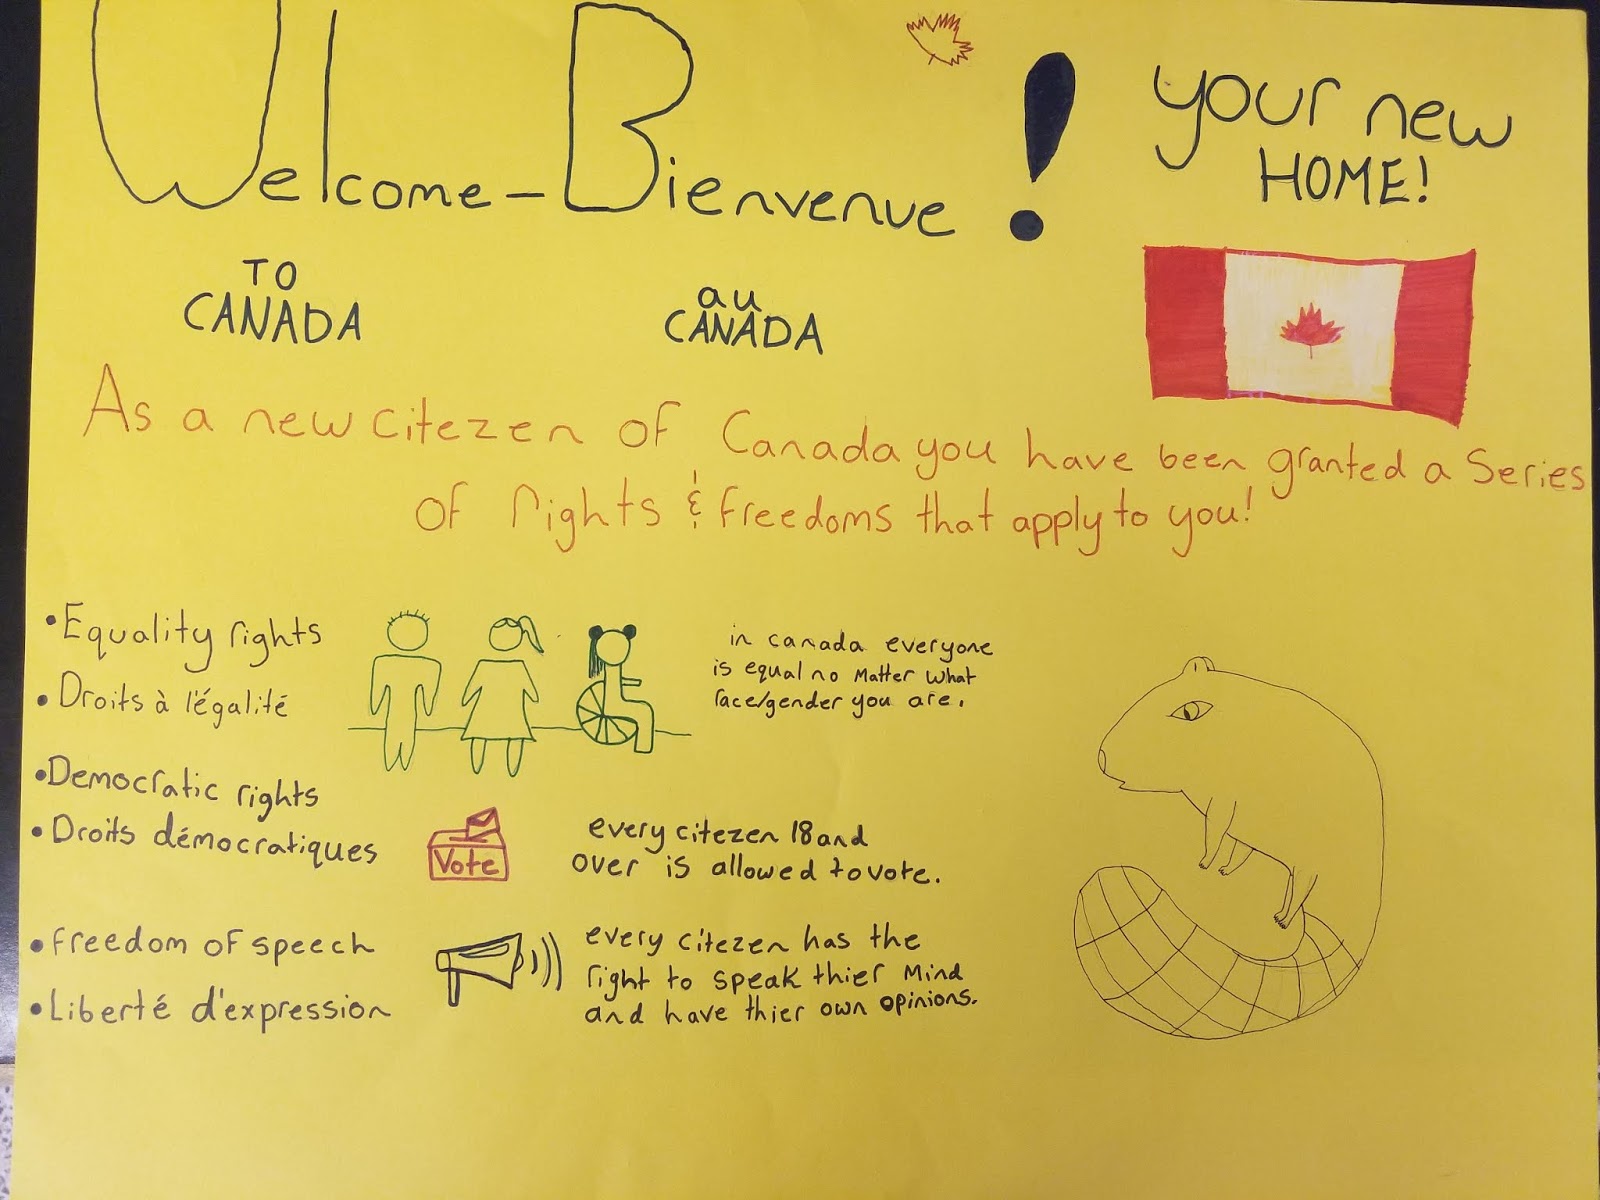 Welcome - Bienvenue!
TO
CANADA
au
CANADA
your new
HOME!
As a new citezen of Canada you have been granted a Series
of rights & freedoms that apply to you!
• Equality rights
• Droits à l'égalité
in canada everyone
is equal no matter what
race/gender you are.
• Democratic rights
• Droits démocratiques
Vote
every citezen 18 and
over is allowed to vote.
• freedom of speech
• Liberté d'expression
every citezen has the
right to speak thier mind
and have thier own opinions.